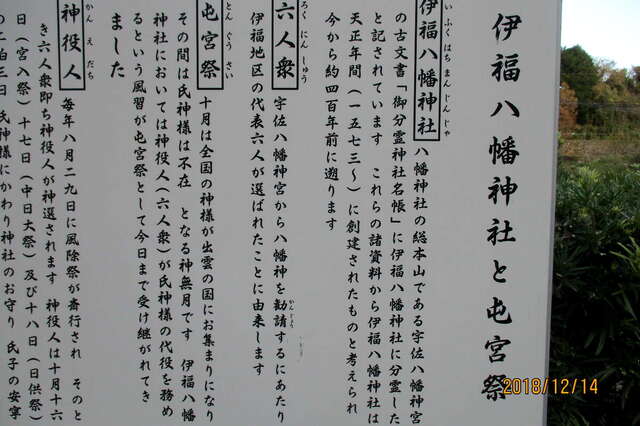 伊福八幡神社と屯宮祭
いふくはちまんじんじゃ
伊福八幡神社
八幡神社の総本山である宇佐八幡神宮
の古文書「御分霊神社名帳」に伊福八幡神社に分霊した
と記されています これらの諸資料から伊福八幡神社は
天正年間(一五七三〜)に創建されたものと考えられ
今から約四百年前に遡ります
ろくにんしゅう
六人衆
宇佐八幡神宮から八幡神を勧請するにあたり
かんじょう
伊福地区の代表六人が選ばれたことに由来します
とんぐうさい
屯宮祭
十月は全国の神様が出雲の国にお集まりになり
その間は氏神様は不在 となる神無月です 伊福八幡
神社においては神役人(六人衆)が氏神様の代役を務め
るという風習が屯宮祭として今日まで受け継がれてき
ました
かんえだち
神役人
毎年八月二九日に風除祭が斎行され そのと
き六人衆即ち神役人が神選されます 神役人は十月十六
日(宮入祭)十七日(中日大祭)及び十八日(日供祭)
の二泊三日 氏神様にかわり神社のお守り 氏子の安寧
2018/12/14